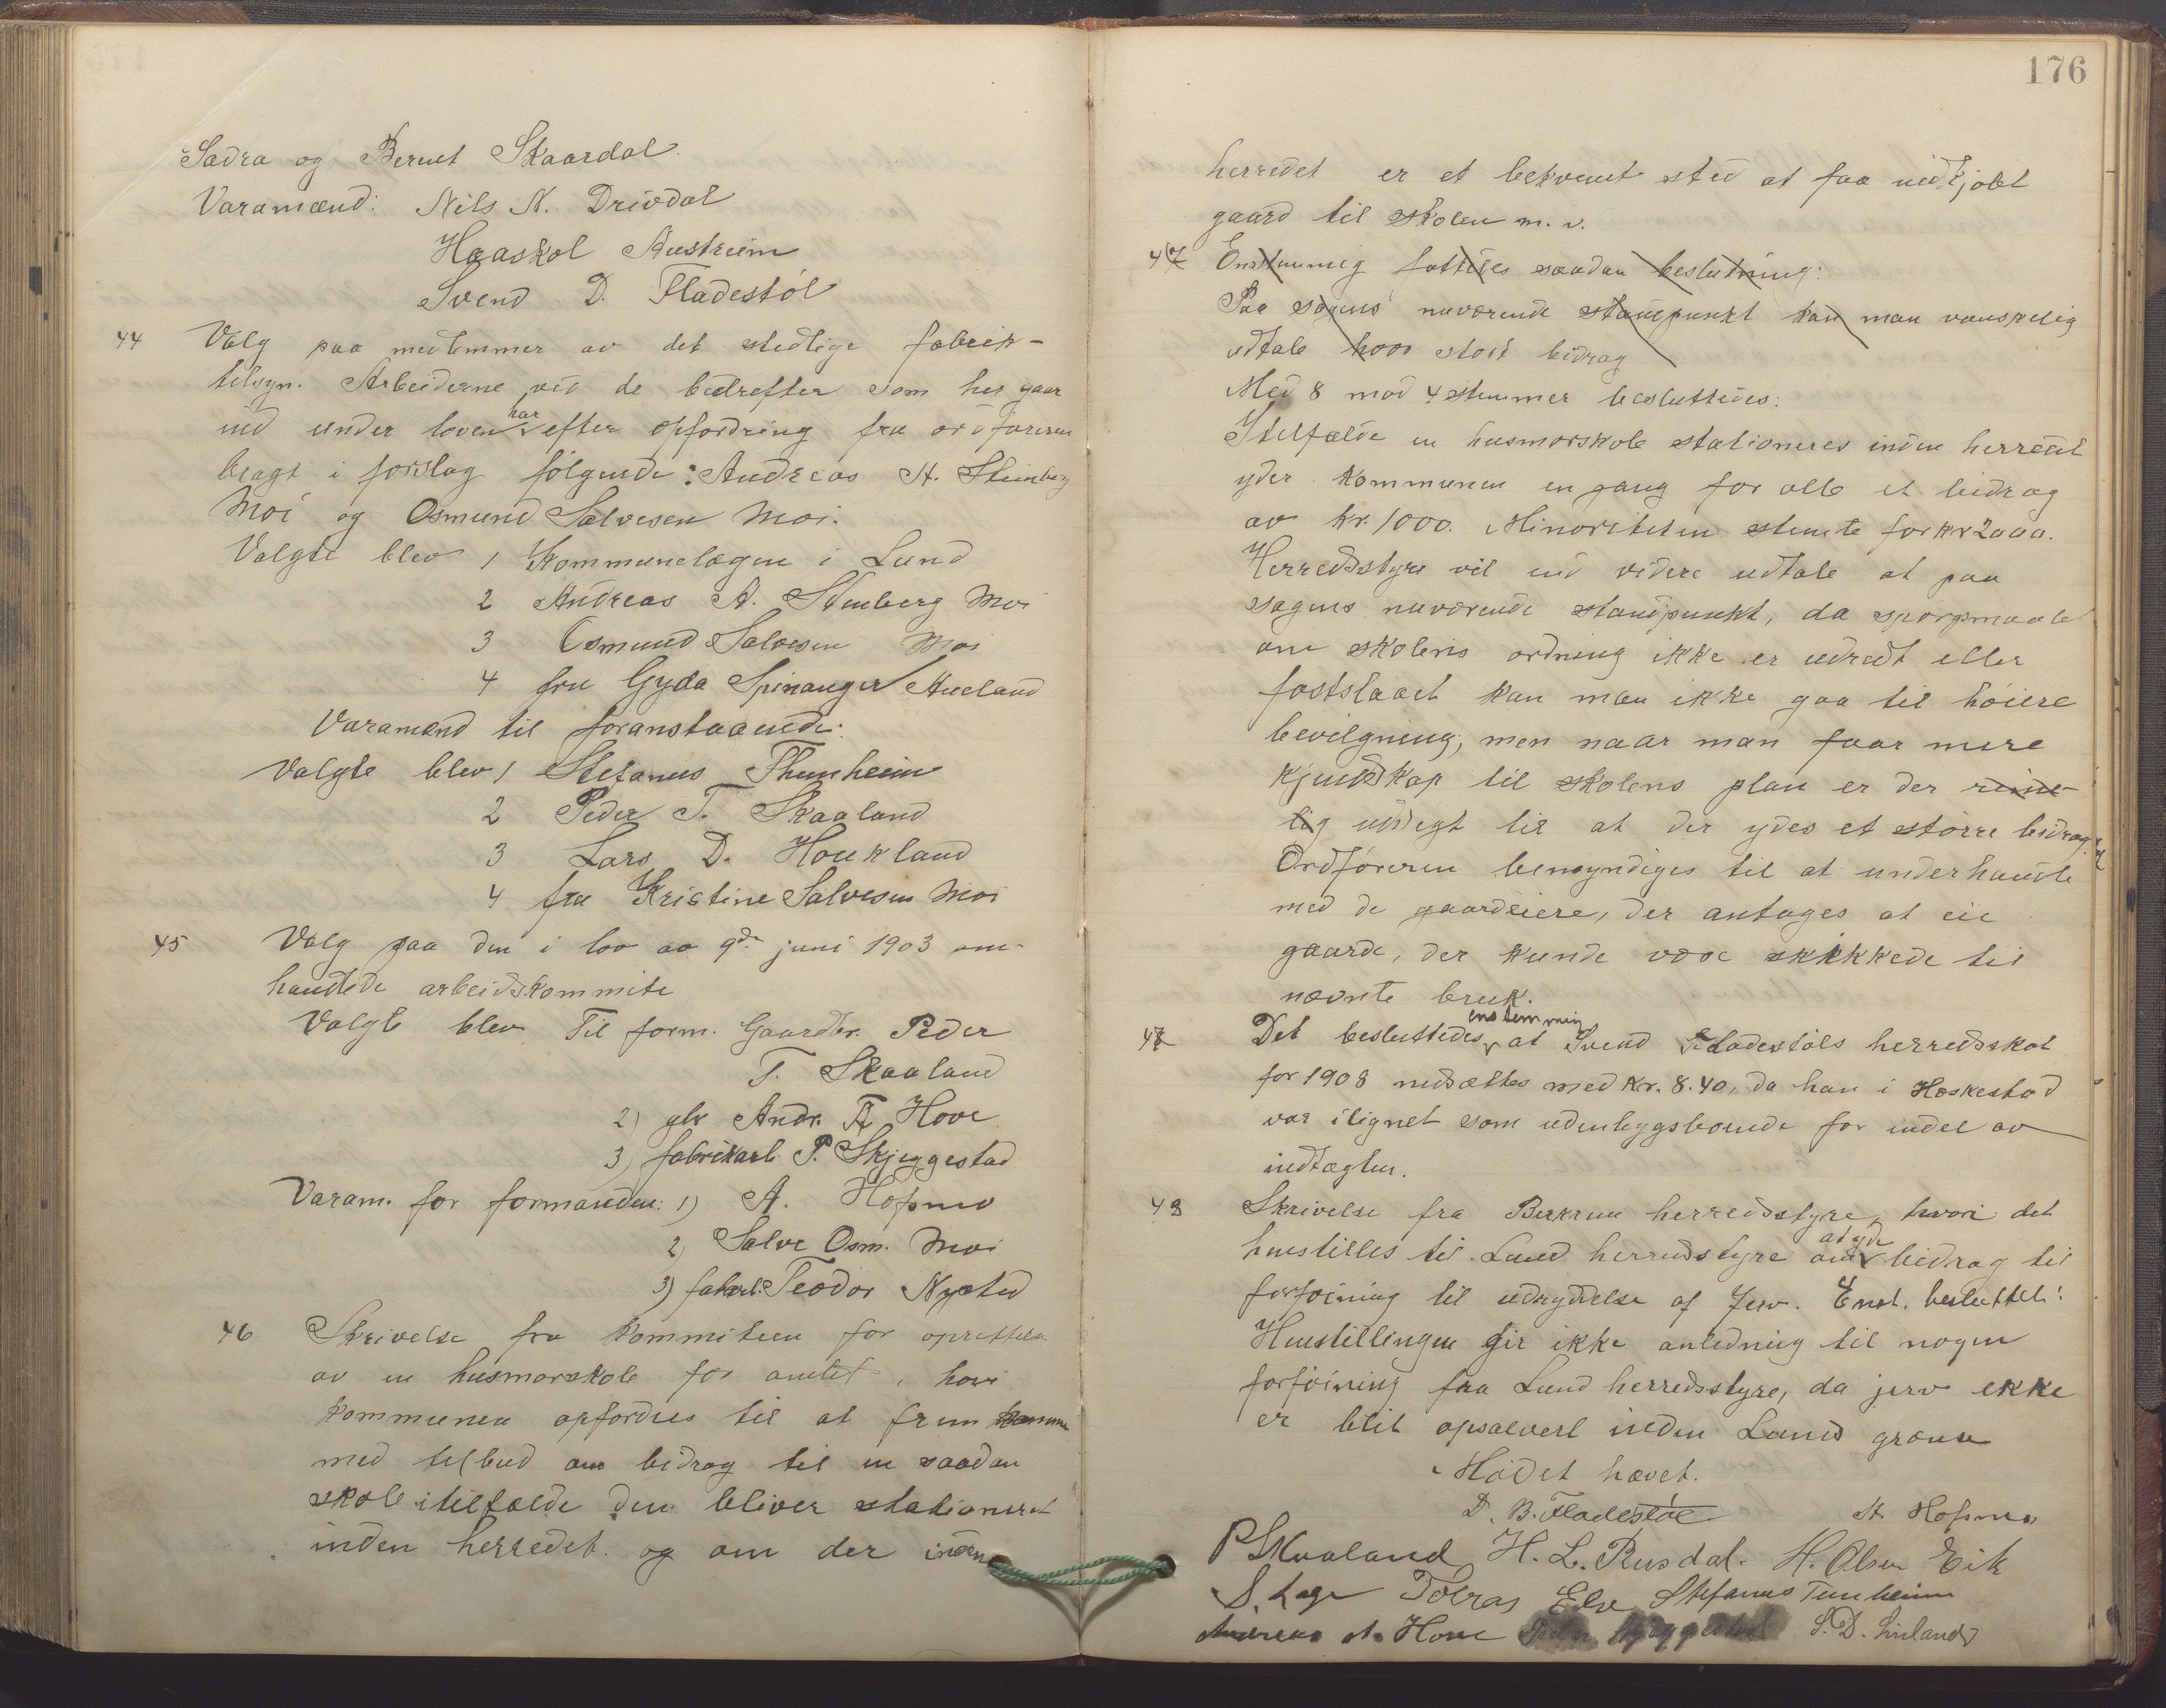 Sædra og Bernt Skaardal.
Varamænd: Nils N. Drivdal
Haaskol Austreim
Svend D. Fladestöl
44 Valg paa medlemmer av det stedlige fabrik-
tilsyn. Arbeiderne ved de bedrefter som her gaar
ind under loven har efter opfordring fra ordföreren
bragt i forslag følgende: Andreas A. Stenberg
Moi og Osmund Salvesen Moi.
Valgte blev 1 Kommunelægen i Lund
2 Andreas A. Stenberg Moi
3 Osmund Salvesen Moi
4 fru Gyda Spinanger Aueland
Varamænd til foranstaaende:
Valgte blev 1 Stefanus Thunheim
2 Peder T. Skaaland
3 Lars D. Houkland
4 fru Kristine Salvesen Moi
45 Valg paa den i lov av 9de juni 1903 om-
handlede arbeidskommite
Valgt blev Til form. Gaardbr. Peder
T. Skaaland
2) gbr Andr. A Hove
3) fabrikarb. P. Skjeggestad
Varam. for formanden: 1) A. Hofsmo
2) Salve Osm. Moi
3) fabarb. Teodor Nysted
46 Skrivelse fra kommiteen for oprettelse
av en husmorskole for amtet, hvori
kommunen opfordres til at frem komme
med tilbud om bidrag til en saadan
skole i tilfælde den bliver stationeret
inden herredet. og om der inden
176
herredet er et bekvemt sted at faa indkjøbt
gaard til skolen m. v.
47 Enstemmig fattedes saadan beslutning:
Paa sagens nuværende standpunkt kan man vanskelig
udtale hvor stort bidrag
Med 8 mod 4 stemmer besluttedes:
I tilfælde en husmorskole stationeres inden herredet
yder kommunen en gang for alle et bidrag
av kr. 1000. Minoriteten stemte for kr 2000.
Herredsstyre vil end videre udtale at paa
sagens nuværende standpunkt, da spørgsmaalet
om skolens ordning ikke er udredt eller
fastslaaet kan man ikke gaa til höiere
bevilgning, men naar man faar mere
kjendskap til skolens plan er der rime-
lig udsegt til at der ydes et större bidrag.
Ordföreren bemyndiges til at underhandle
med de gaardeiere, der antages at eie
gaarde, der kunde være skikkede til
nævnte bruk.
47 Det besluttedes enstemmig at Svend Fladestöls herredsskat
for 1908 nedsættes med kr. 8.40, da han i Heskestad
var ilignet som udenbygsboende for endel av
indtægten.
48 Skrivelse fra Bierkrem herredsstyre, hvori det
henstilles til Lund herredsstyre om at yde bidrag til
forföining til udryddelse af Jerv. Enst. besluttet:
Henstillingen gir ikke anledning til nogen
forföining fra Lund herredsstyre, da jerv ikke
er blit opsølverl inden Lunds grænse
Mödet hævet.
D. B. Fladestöl A. Hofsmo
P Skaaland H. L. Rusdal. H. Olsen Eik
S. Lage Tobias Elve Stefanus Tunheim
Andreas A. Hove Peder Skjeggestad S. D. Lineland